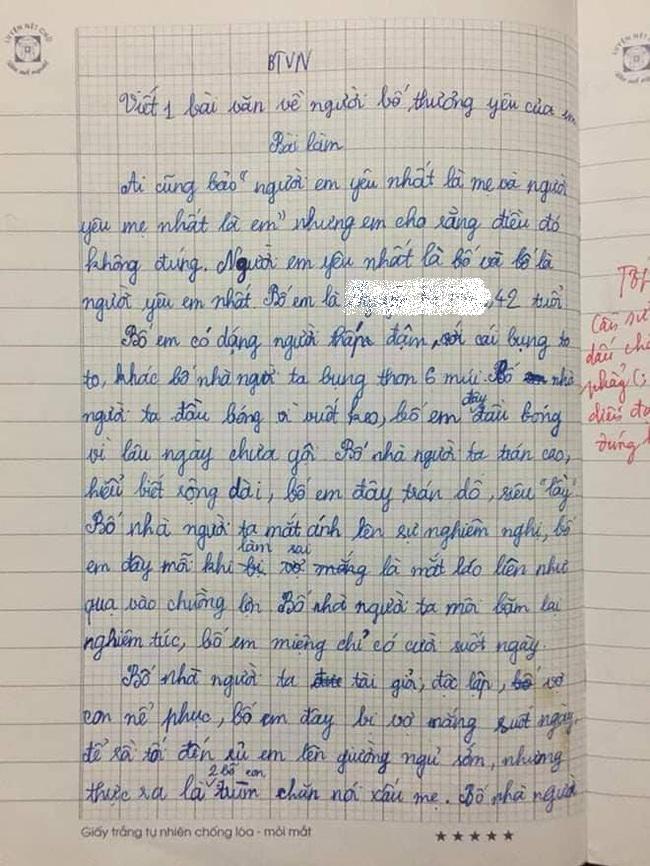 LUYỆN NÉT CHỮ
BTVN
Viết 1 bài văn về người bố thương yêu của em
Bài làm
Ai cũng bảo "người em yêu nhất là mẹ và người
yêu mẹ nhất là em" nhưng em cho rằng điều đó
không đúng. Người em yêu nhất là bố và bố là
người yêu em nhất. Bố em là , 42 tuổi
Bố em có dáng người thấp đậm, với cái bụng to
to, khác bố nhà người ta bụng thon 6 múi. Bố nhà
người ta đầu bóng vì vuốt keo, bố em đây đầu bóng
vì lâu ngày chưa gội. Bố nhà người ta trán cao,
hiểu biết rộng dài, bố em đây trán dô, siêu "lầy"
Bố nhà người ta mắt ánh lên sự nghiêm nghị, bố
em đây mỗi khi làm sai là mắt láo liên như
qua vào chuồng lợn Bố nhà người ta môi bặm lại
nghiêm túc, bố em miệng chỉ có cười suốt ngày.
Bố nhà người ta tài giỏi, độc lập, vợ
con nể phục, bố em đây bị vợ mắng suốt ngày,
để rồi tối đến rủ em lên giường ngủ sớm, nhưng
thực ra là 2 bố con trùm chăn nói xấu mẹ. Bố nhà người
Giấy trắng tự nhiên chống lóa - mỏi mắt
Cần sử
dấu
phẩy (;